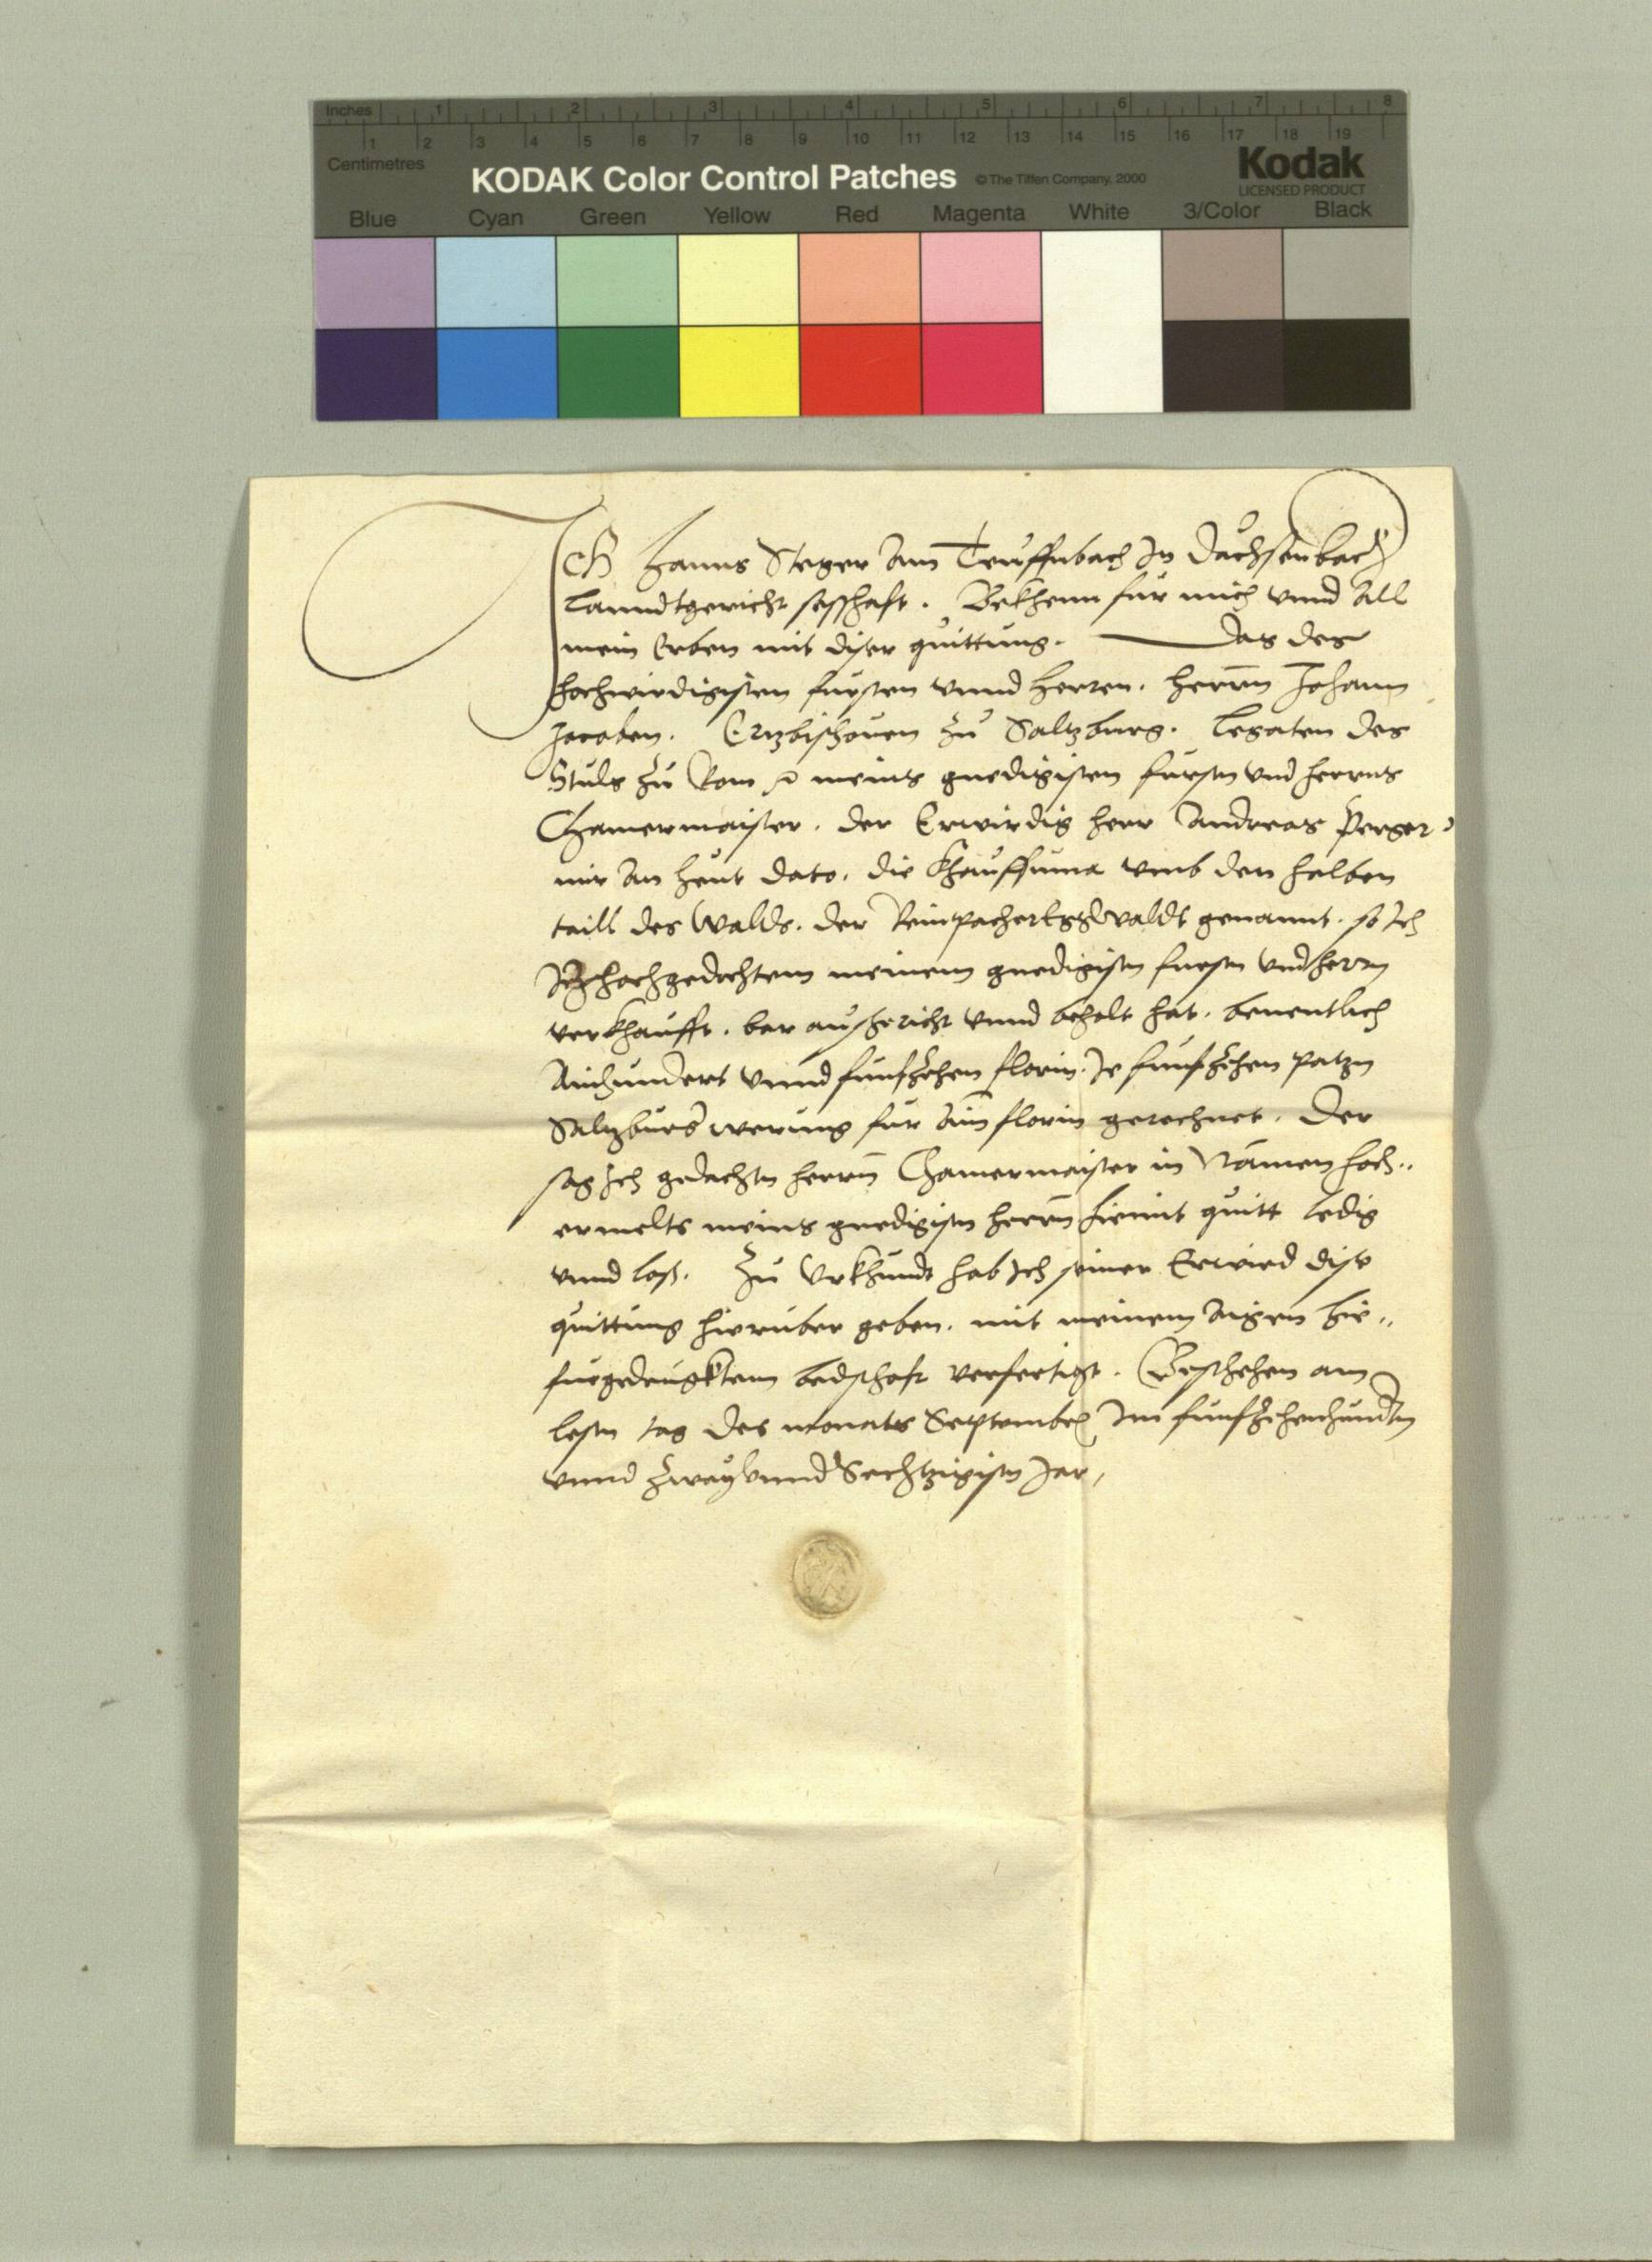 Inches 1 2 3 4 5 6 7 8
1 2 3 4 5 6 7 8 9 10 11 12 13 14 15 16 17 18 19
Centimetres
KODAK Color Control Patches © The Tiffen Company, 2000 Kodak
LICENSED PRODUCT
Blue Cyan Green Yellow Red Magenta White 3/Color Black
Ich Hanns Steger Am Teuffnbach In Dächsenbach
Lanndtgericht sesshaft. Bekhenn für mich vnnd All
mein Erben mit diser quittung. Das des
hochwirdigisten fürsten vnnd Herren. Herrn̄ Johann
Jacoben. Ertzbischouen zu Saltzburg. Legaten des
Stuls zu Rom meins gnedigisten fürsten vnd herrens
Chamermaister. der Erwirdig herr Andreas Perger
mir An heut dato. die Khauffsuma vmb den halben
taill des Walds. der genannt. so Ich
hochgedachtem meinem gnedigisten fursten vnd herrn
verkhaufft. bar aussgericht vnnd bezalt hat. benentlich
Ainhundert vnnd funfzehen florin. Je funfzehen patzn
Saltzburg werung für ain florin gerechnet. Der
sag Ich gedachten herrn̄ Chamermaister in Namen hoch..
ermelts meins gnedigisten herrn̄ hiemit quitt ledig
vnnd loss. Zu Vrkhundt hab Ich seiner Erwird dise
quittung hieruber geben. mit meinem aigen hie..
furgedrugktem bedschaft verfertigt. Geschehen am
lesten tag des monats September Im funfzehenhundten
vnnd zwayvnnd Sechtzigisten Jar.